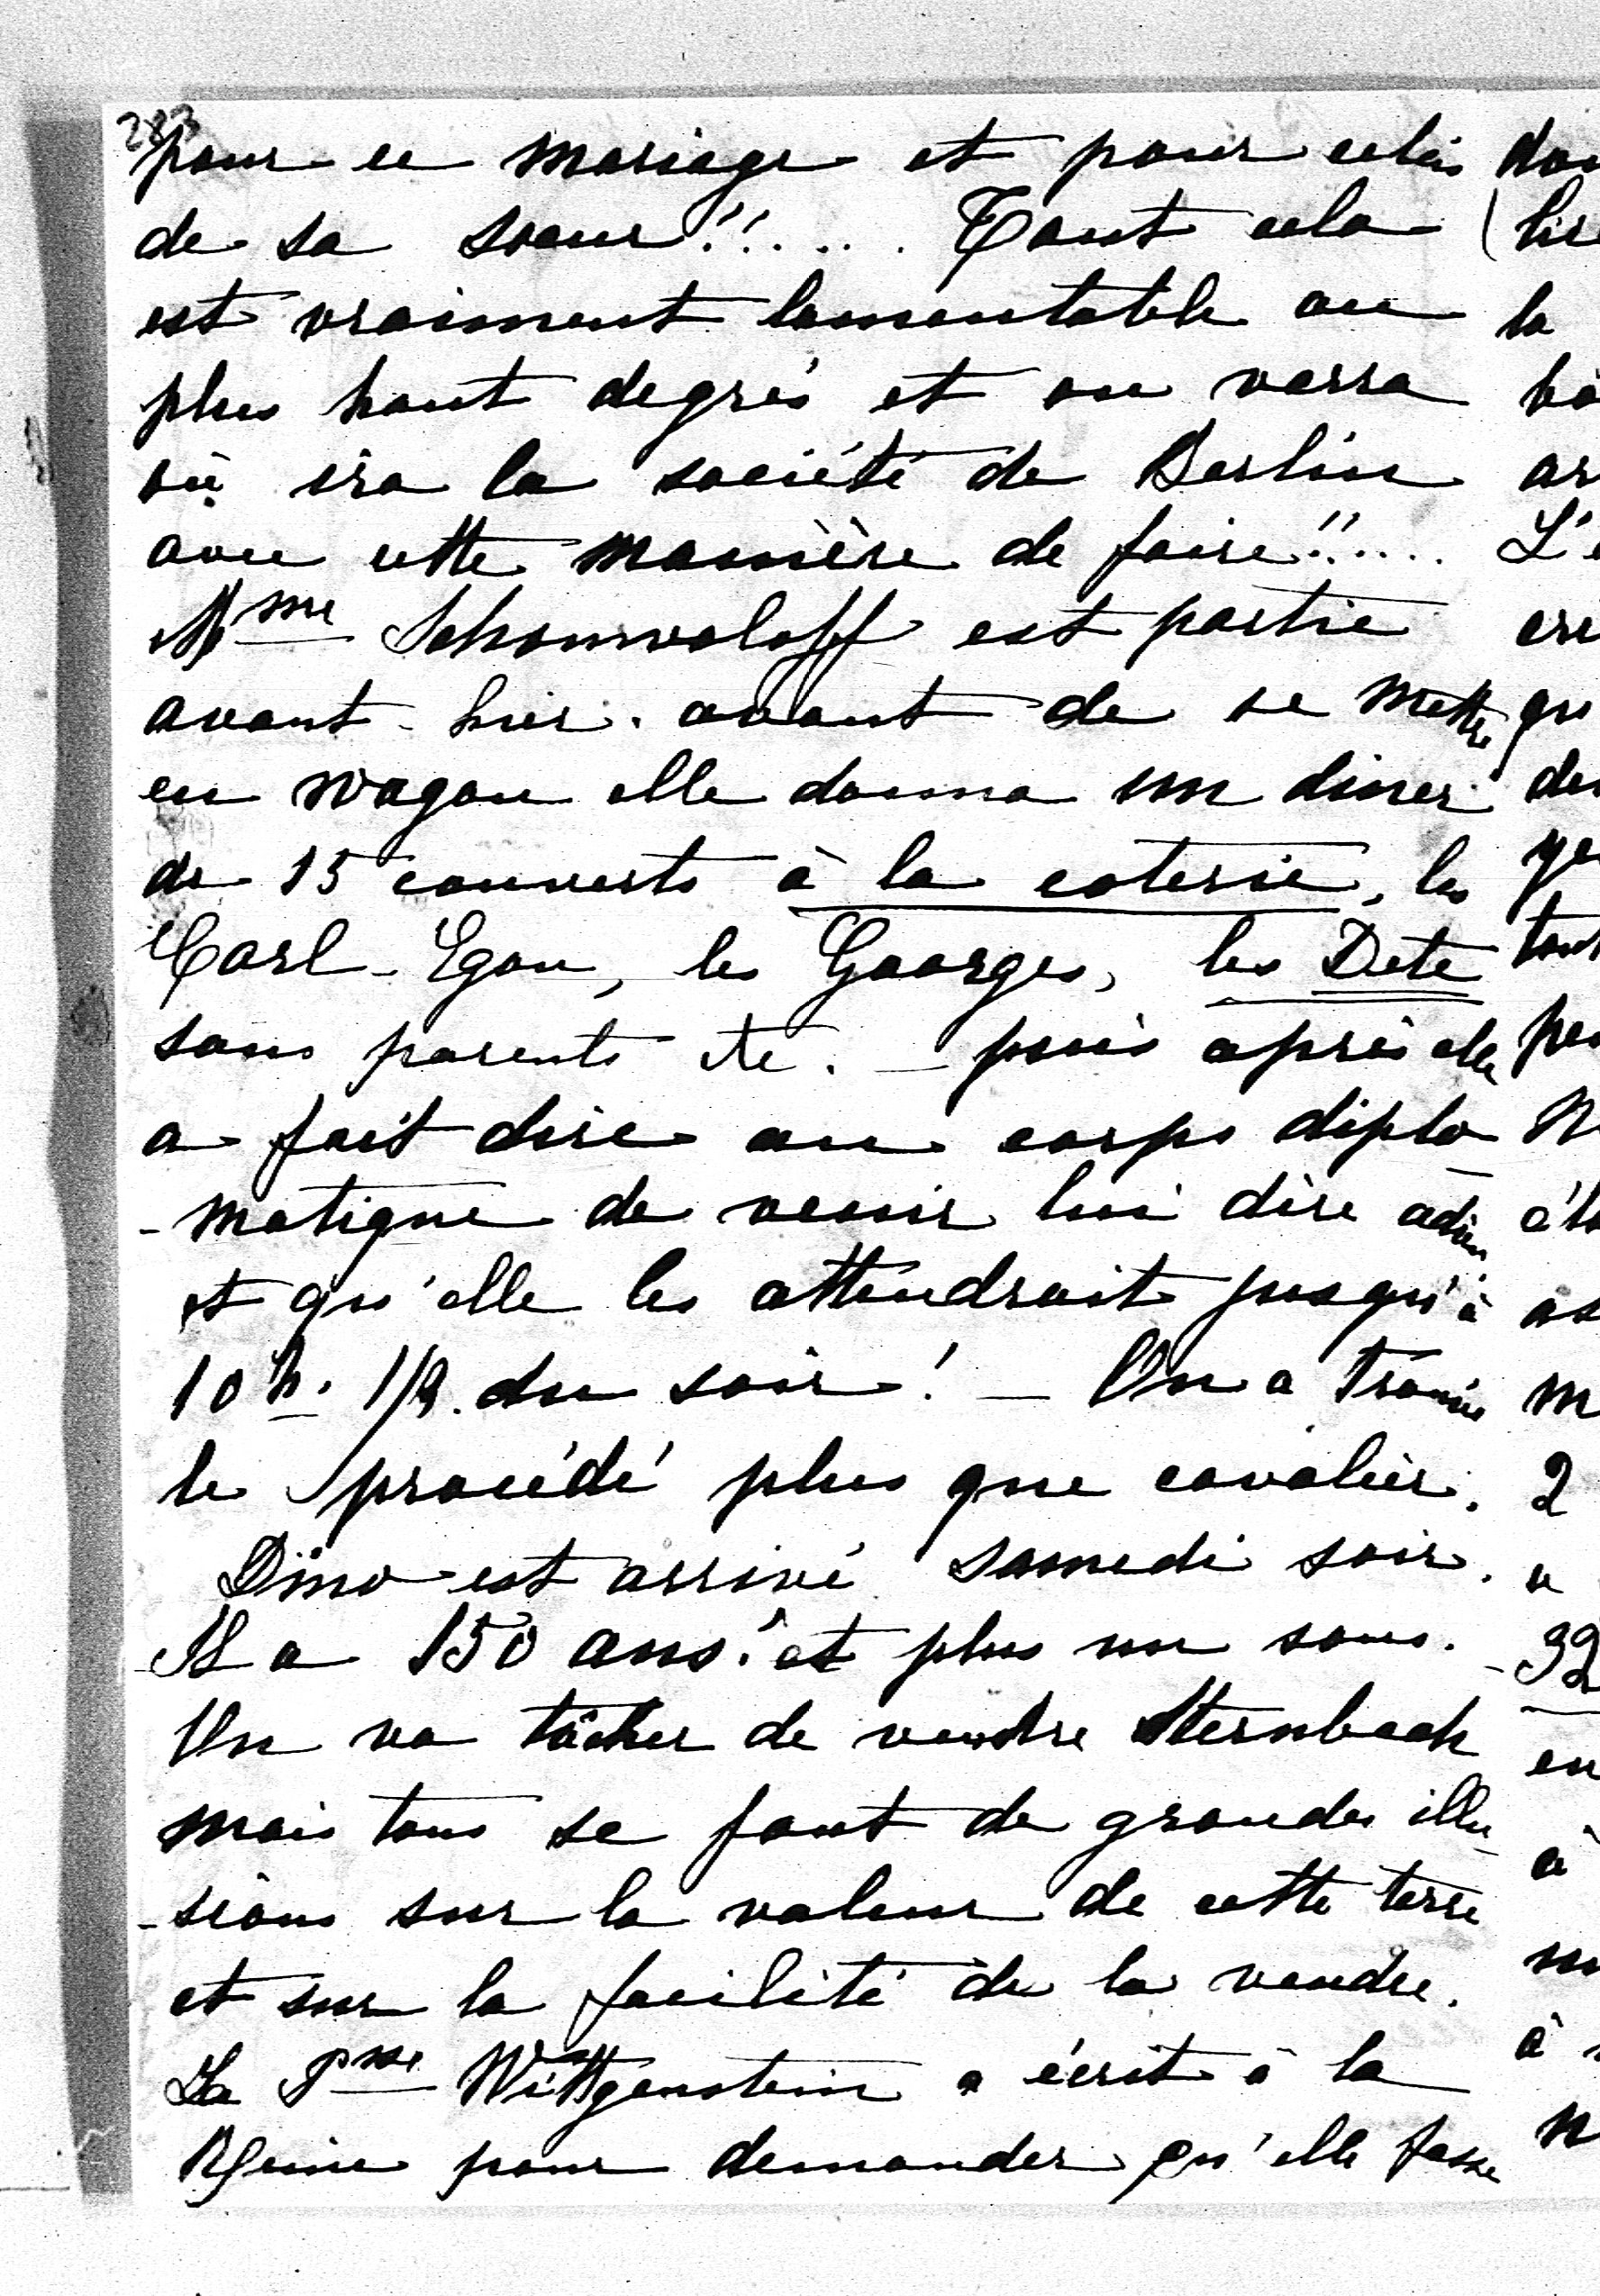 283
pour ce mariage et pour celui
de sa soeur!!..... Tout cela
est vraiment lamentable au
plus haut degrés et on verra
où ira la société de Berlin
avec cette manière de faire!!.....
Mme Schouwaloff est partie
avant-hier. avant de se mettre
en wagon elle donna un diner
de 15 couverts à la coterie, les
Carl-Egon, les Georges, les Dete
sans parents etc. — puis après elle
a fait dire au corps diplo
-matique de venir lui dire adieu
et qu'elle les attendrait jusqu'à
10 h. 1/2 du soir! — On a trouvé
le procédé plus que cavalier.
Dino est arrivé samedi soir.
Il a 150 ans! et plus un sous.
On va tâcher de vendre Sternbeck
mais tous se font de grandes illu
-sions sur la valeur de cette terre
et sur la facilité de la vendre.
La Psse Wittgenstein a écrit à la
Reine pour demander qu'elle fasse